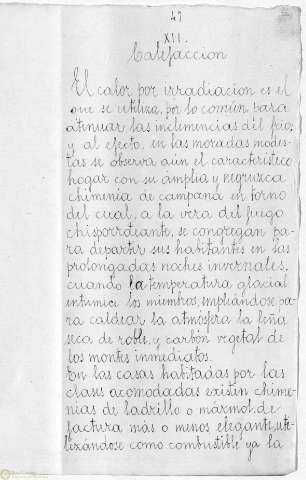 47
XII.
Calefaccion
El calor por irradiacion es el
que se utiliza, por lo común, para
atenuar las inclemencias del frio,
y al efecto, en las moradas modes-
tas se observa aún el caracteristico
hogar con su amplia y negruzca
chimenia de campana en torno
del cual, a la vera del fuego
chisporrotiante, se congregan pa-
ra departir sus habitantes en las
prolongadas noches invernales,
cuando la temperatura glacial
entumice los miembros, empliándose pa-
ra caldear la atmosfera la leña
seca de roble, y carbón vegetal de
los montes inmediatos.
En las casas habitadas por las
clases acomodadas existen chime-
nias de ladrillo o mármol, de
factura más o menos elegante, uti-
lizándose como combustible ya la